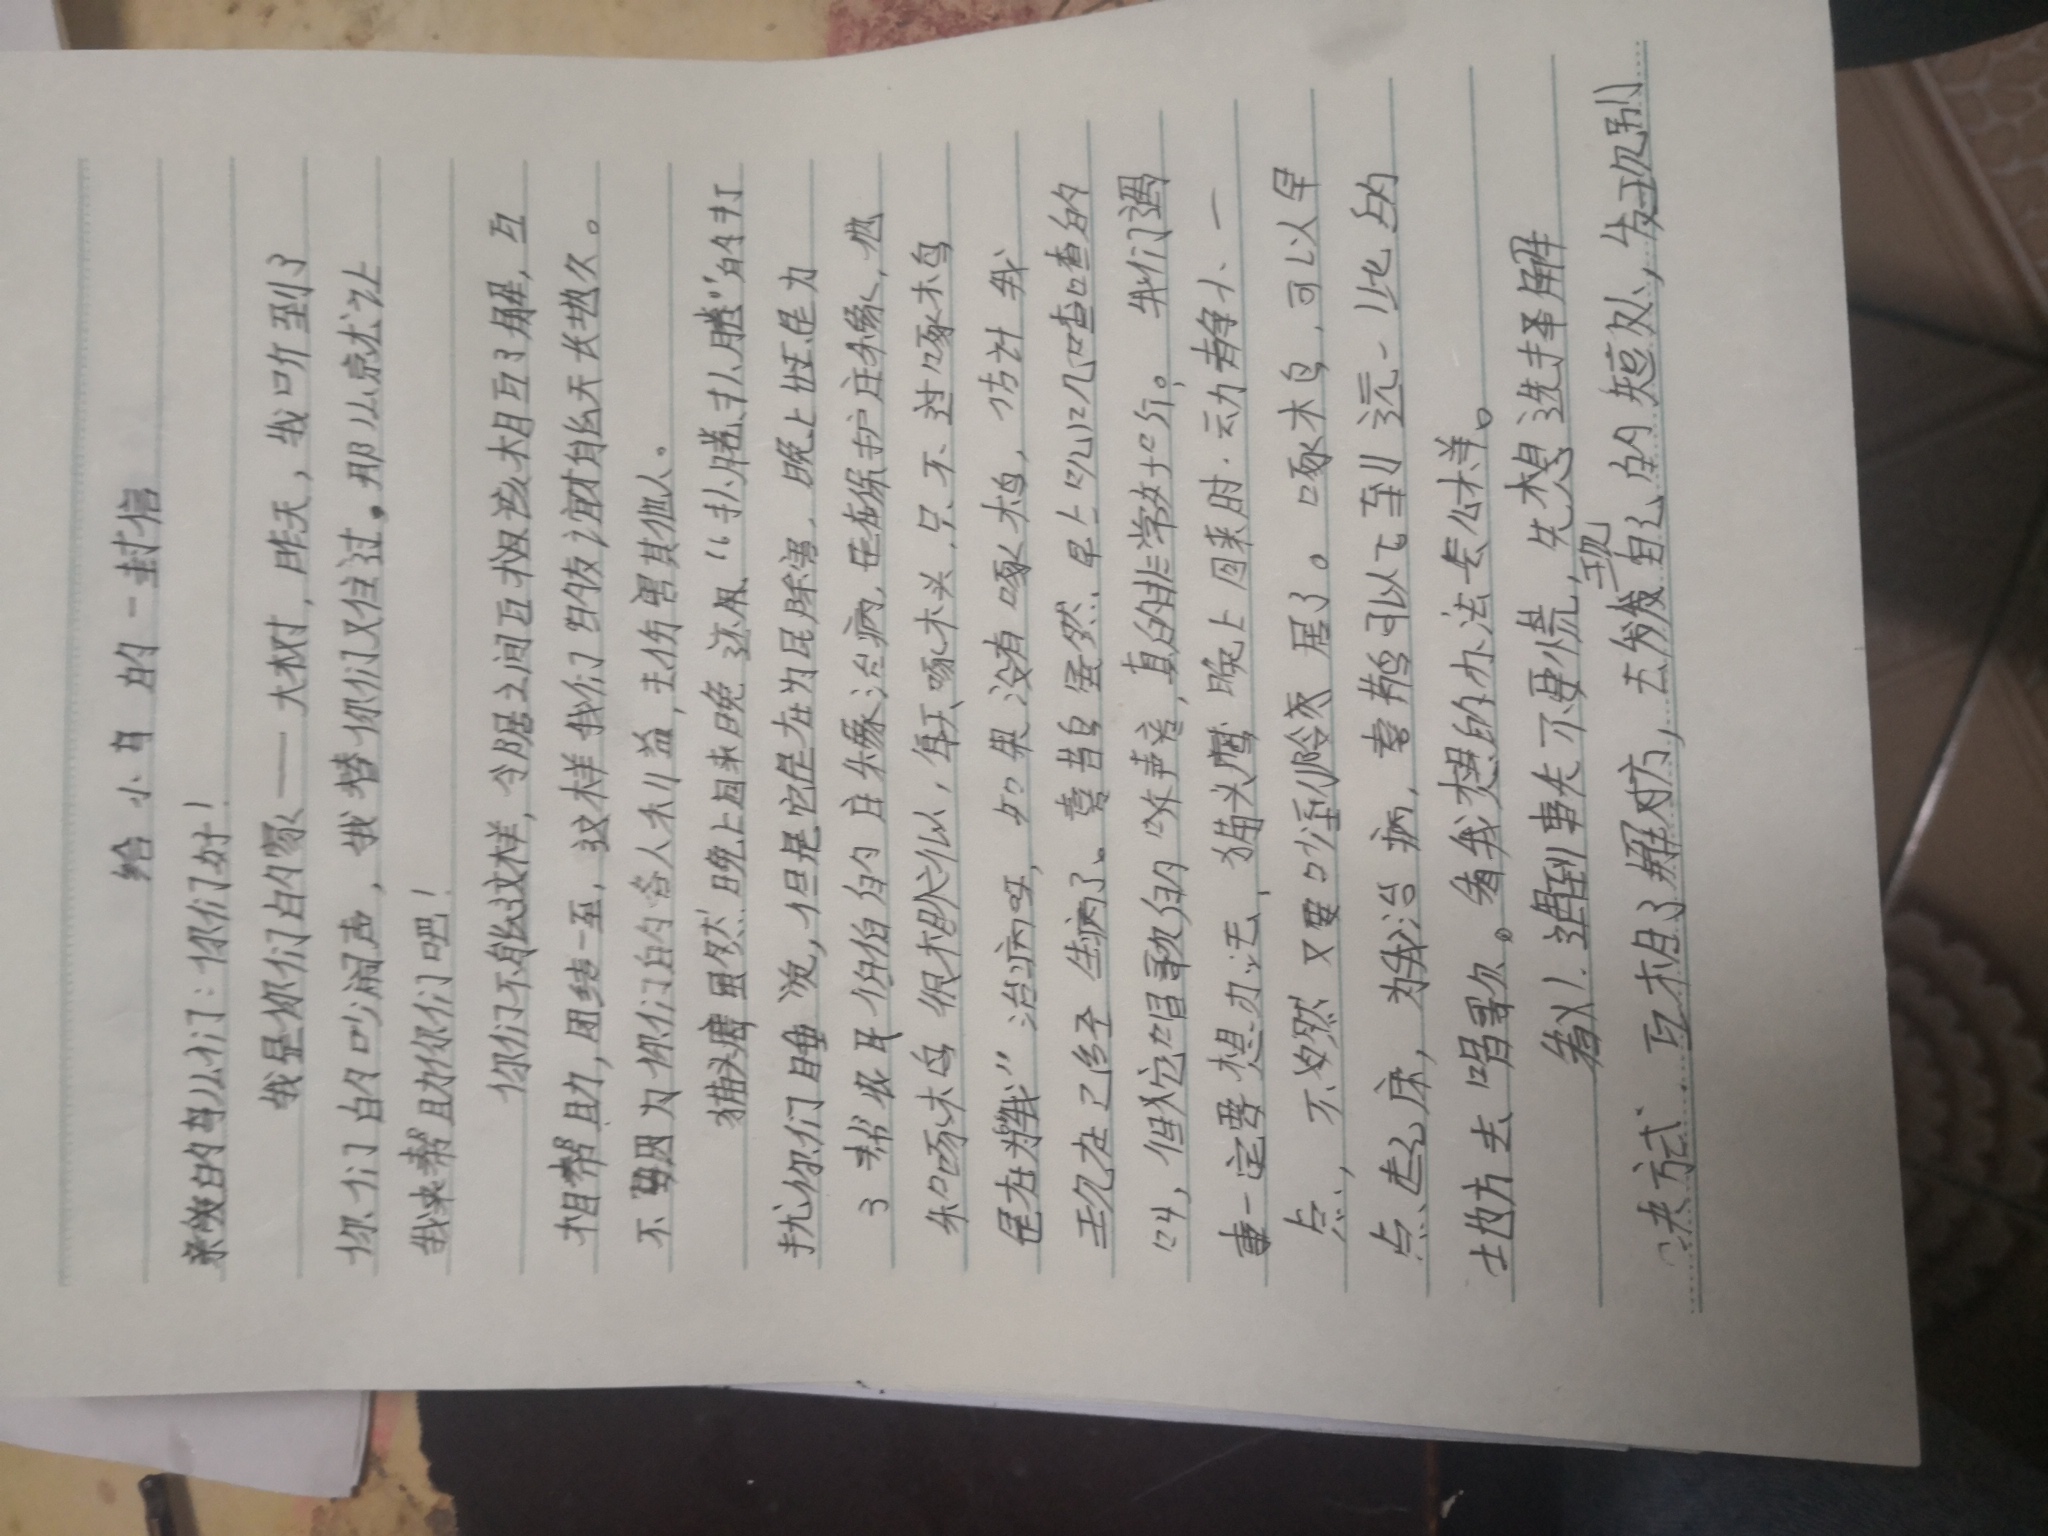 给小鸟的一封信
亲爱的鸟儿们：你们好！
我是你们的家——大树，昨天，我听到了
你们的吵闹声，我替你们又住过。那么就让
我来帮助你们吧！
你们不能这样，令居之间互相该相互了解，互
相帮助，团结一至，这样我们的友谊才能天长地久。
不要因为你们的各人利益，去伤害其他人。
猫头鹰虽然晚上回来晚还用“扑腾扑腾”的打
扰你们睡觉，但是它是在为民除害，晚上旺是为
了帮农民伯伯的庄稼治病，是在保护庄稼，他
和啄木鸟很相似，每天啄木头，只不过啄木鸟
是在为“我”治病呀，如果没有啄木鸟，估计我
现在已经生病了。喜鹊虽然早上叽叽喳喳的
叫，但从它唱歌的歌声音，真的非常好听。我们遇
事一定要想办法，猫头鹰晚上回来时，动静小一
点，不然又要吵到邻居了。啄木鸟，可以早
点起床，为我治病，喜鹊可以飞到远一些的
地方去唱歌。看我想的办法怎么样。
所以！遇到事先不要慌，先想选择解
决方式，互相了解对方，去发现自己的短处，发现别